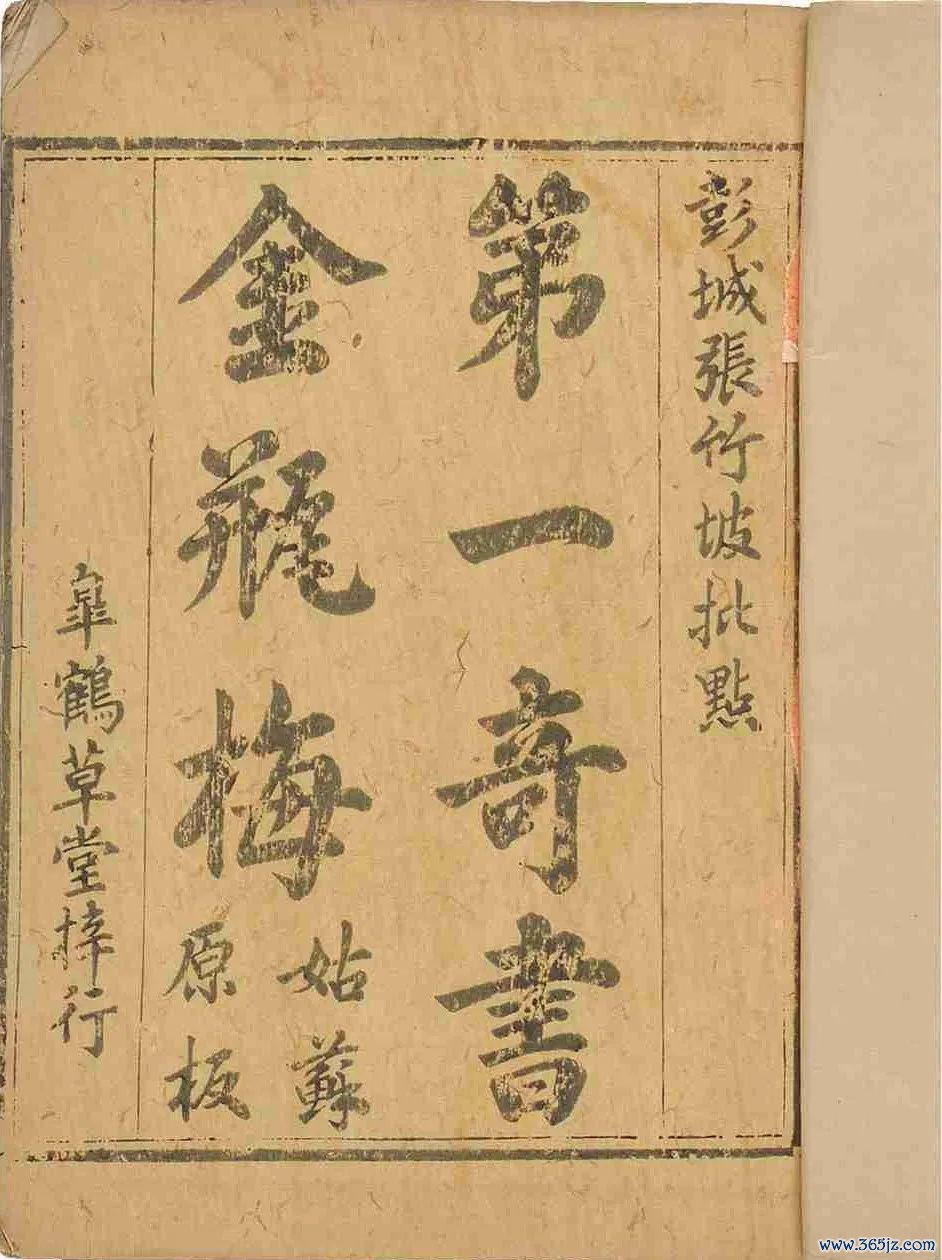 彭城張竹坡批點
第一奇書
金瓶梅
姑蘇
原板
皐鶴草堂梓行
www.365jz.com